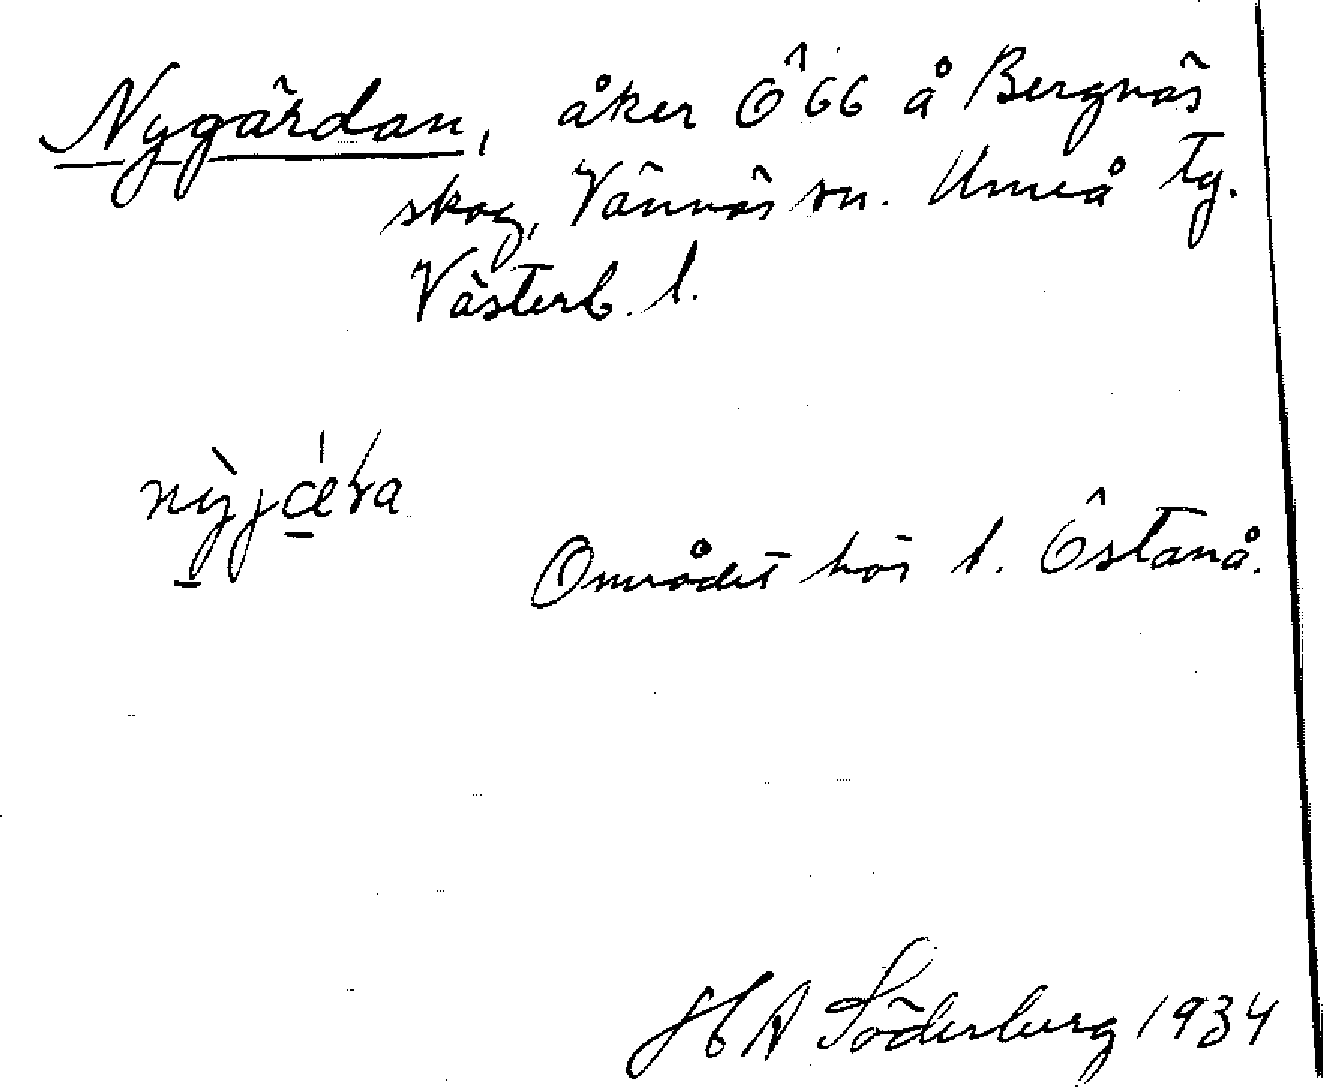 Nygärdan, åker Ö 66 å Bergnäs
skog, Vännäs sn. Umeå tg.
Västerb. l.
Området hör t. Östanå.
H A Söderberg 1934